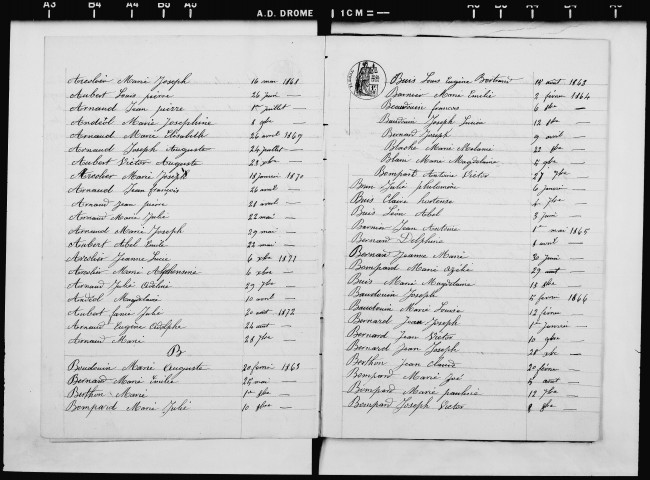 A3 B4 A4 B5 A5 A.D. DROME 1CM A5 B5 A4 B4 A3
Arcolier Marie Joseph 16 mai 1868
Aubert Louis pierre 26 juin —
Arnaud Jean pierre 1er juillet —
Andéol Marie Joséphine 8 9bre —
Arnaud Marie Elisabeth 26 avril 1869
Arnaud Joseph Auguste 24 juillet —
Aubert Victor Auguste 23 xbre —
Arcolier Marie Joseph 18 janvier 1870
Arnaud Jean françois 26 avril —
Arnaud Jean pierre 28 avril —
Arnaud Marie Julie 22 mai —
Arnaud Marie Joseph 29 mai —
Aubert Abel Emile 22 mai —
Arcolier Jeanne Lucie 6 xbre 1871
Arcolier Marie Alphonsine 6 xbre —
Arnaud Julie 29 7bre —
Andéol Magdelaine 10 avril —
Aubert Julie 20 août 1872
Arnaud Eugène Adolphe 24 août —
Arnaud Marie 28 7bre —
B
Baudouin Marie Auguste 20 février 1863
Bernard Marie Emilie 25 mai —
Berthon Marie 1er —
Bompard Marie Julie 10 8bre —
Buis Louis Eugène 14 août 1863
Barnier Marie Emilie 2 février 1864
Beaudouin francois 6 —
Baudouin Joseph Lucien 12 8bre —
Bernard Joseph 9 avril —
Blache Marie Melanie 22 —
Blain Marie Magdelaine 5 9bre —
Bompart Antoine Victor 27 7bre
Julie philomène 6 janvier —
Buis Claire hortense 4 7bre —
Buis Léon Abel 3 juin —
Barnier Jean Antoine 1er mai 1865
Bernard Delphine 1 avril —
Bernard Jeanne Marie 30 juin —
Bompard Marie 29 août —
Buis Marie Magdelaine 13 8bre —
Baudouin Joseph 5 févr 1866
Baudouin Marie Louise 12 février —
Bernard Jean Joseph 1er janvier —
Bernard Jean Victor 10 9bre —
Bernard Jean Joseph 28 xbre —
Berthon Jean Claude 20 févr —
Bompard Marie 5 août —
Bompard Marie pauline 12 7bre —
Bompard Joseph Victor 8 8bre —